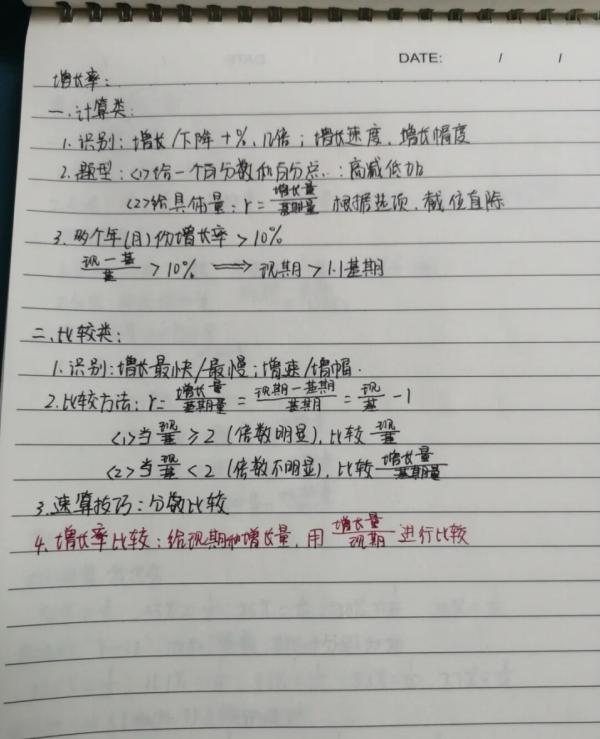 DATE: / /
增长率:
一.计算类:
1.识别:增长/下降+%、几倍;增长速度、增长幅度
2.题型:<1>给一个百分数和百分点..:高减低加
<2>给具体量:r=增长量/基期量 根据选项,截位直除
3.多个年(月)份增长率>10%
现-基/基>10% ⟹ 现期>1.1基期
二.比较类:
1.识别:增长最快/最慢;增速/增幅.
2.比较方法:r=增长量/基期量=现期-基期/基期=现/基-1
<1>当现/基≥2(倍数明显),比较现/基
<2>当现/基<2(倍数不明显),比较增长量/基期量
3.速算技巧:分数比较
4.增长率比较:给现期和增长量,用增长量/现期进行比较